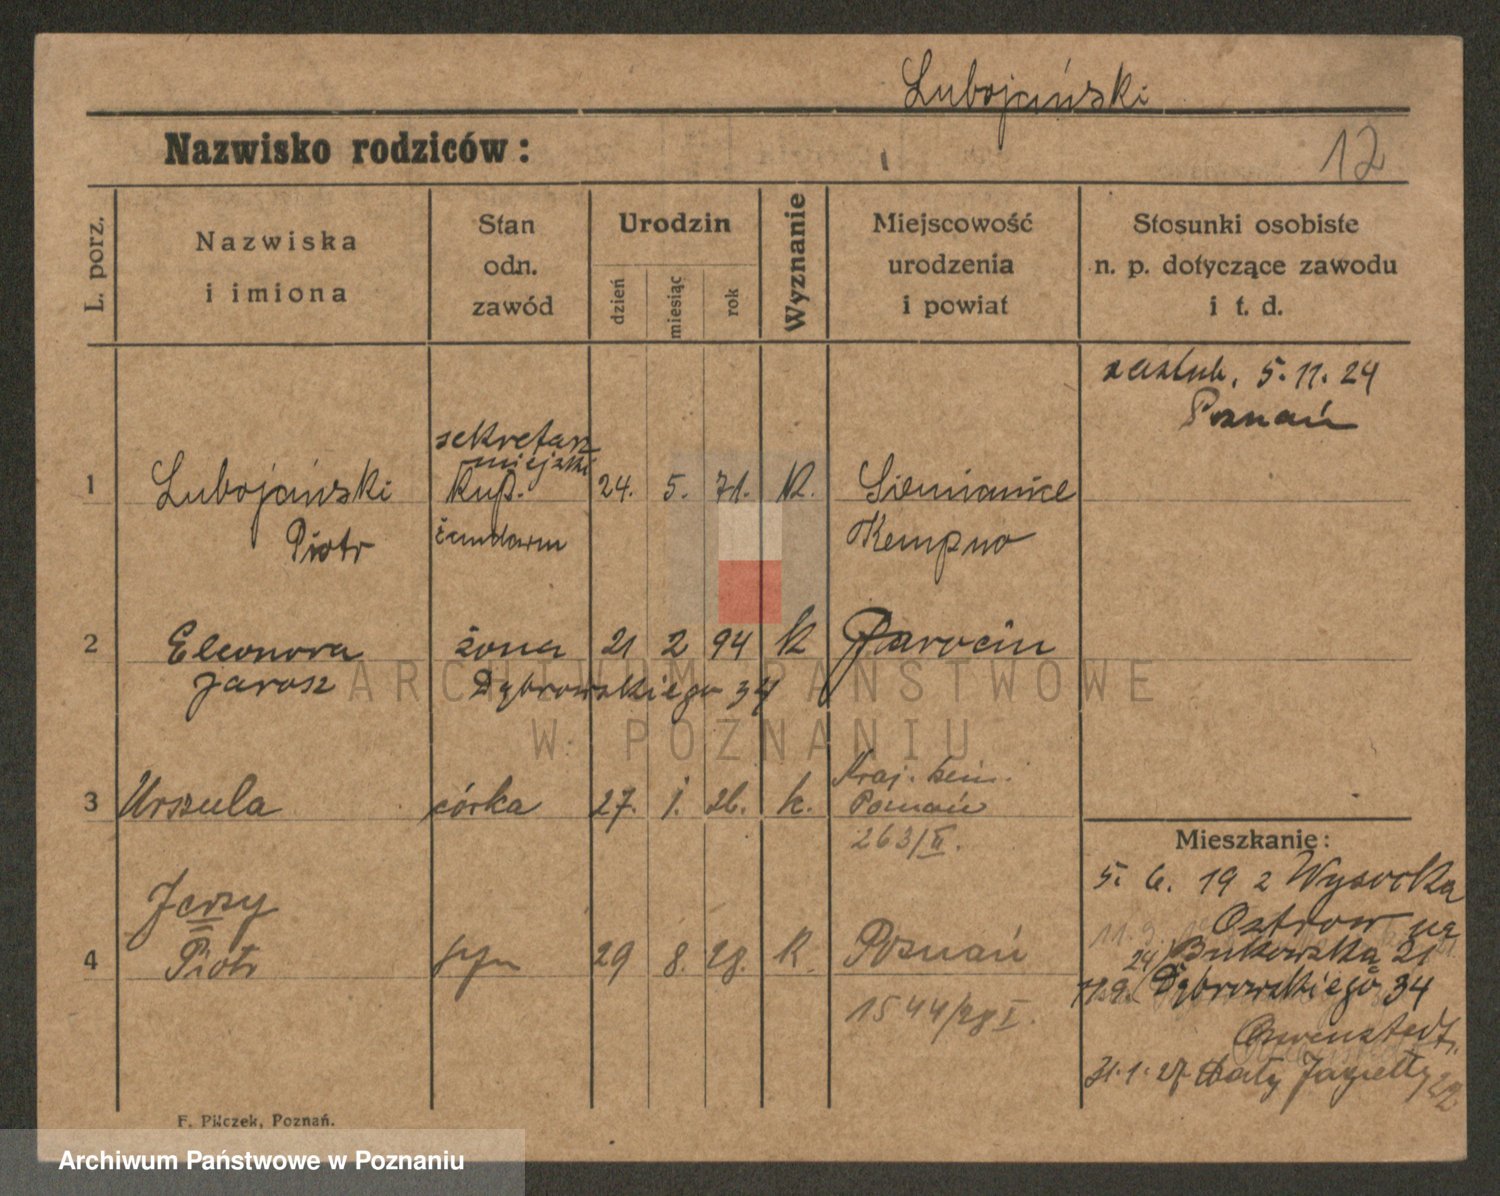 Lubojański
Nazwisko rodziców:
12
L. porz.
Nazwiska
i imiona
Stan
odn.
zawód
Urodzin
dzień
miesiąc
rok
Wyznanie
Miejscowość
urodzenia
i powiat
Stosunki osobiste
n. p. dotyczące zawodu
i t. d.
zaślub. 5.11.24
Poznań
sekretarz
miejski
1 Lubojański kup. 24. 5. 71. K. Siemianice
Piotr żandarm Kempno
2 Eleonora żona 21 2 94 k Jarocin
Jarosz Dąbrowskiego 34
ARCHIWUM PAŃSTWOWE
W POZNANIU
3 Urszula córka 27. 1. 26. k. Poznań
263/II.
Mieszkanie:
5. 6. 19 2 Wysocka
Ostrow
Jerzy
24) Bukowska 21
4 Piotr syn 29 8. 28. K. Poznań
Dąbrowskiego 34
1544/28 I.
31.1.27. Jagiełły 22
F. Pilczek, Poznań.
Archiwum Państwowe w Poznaniu